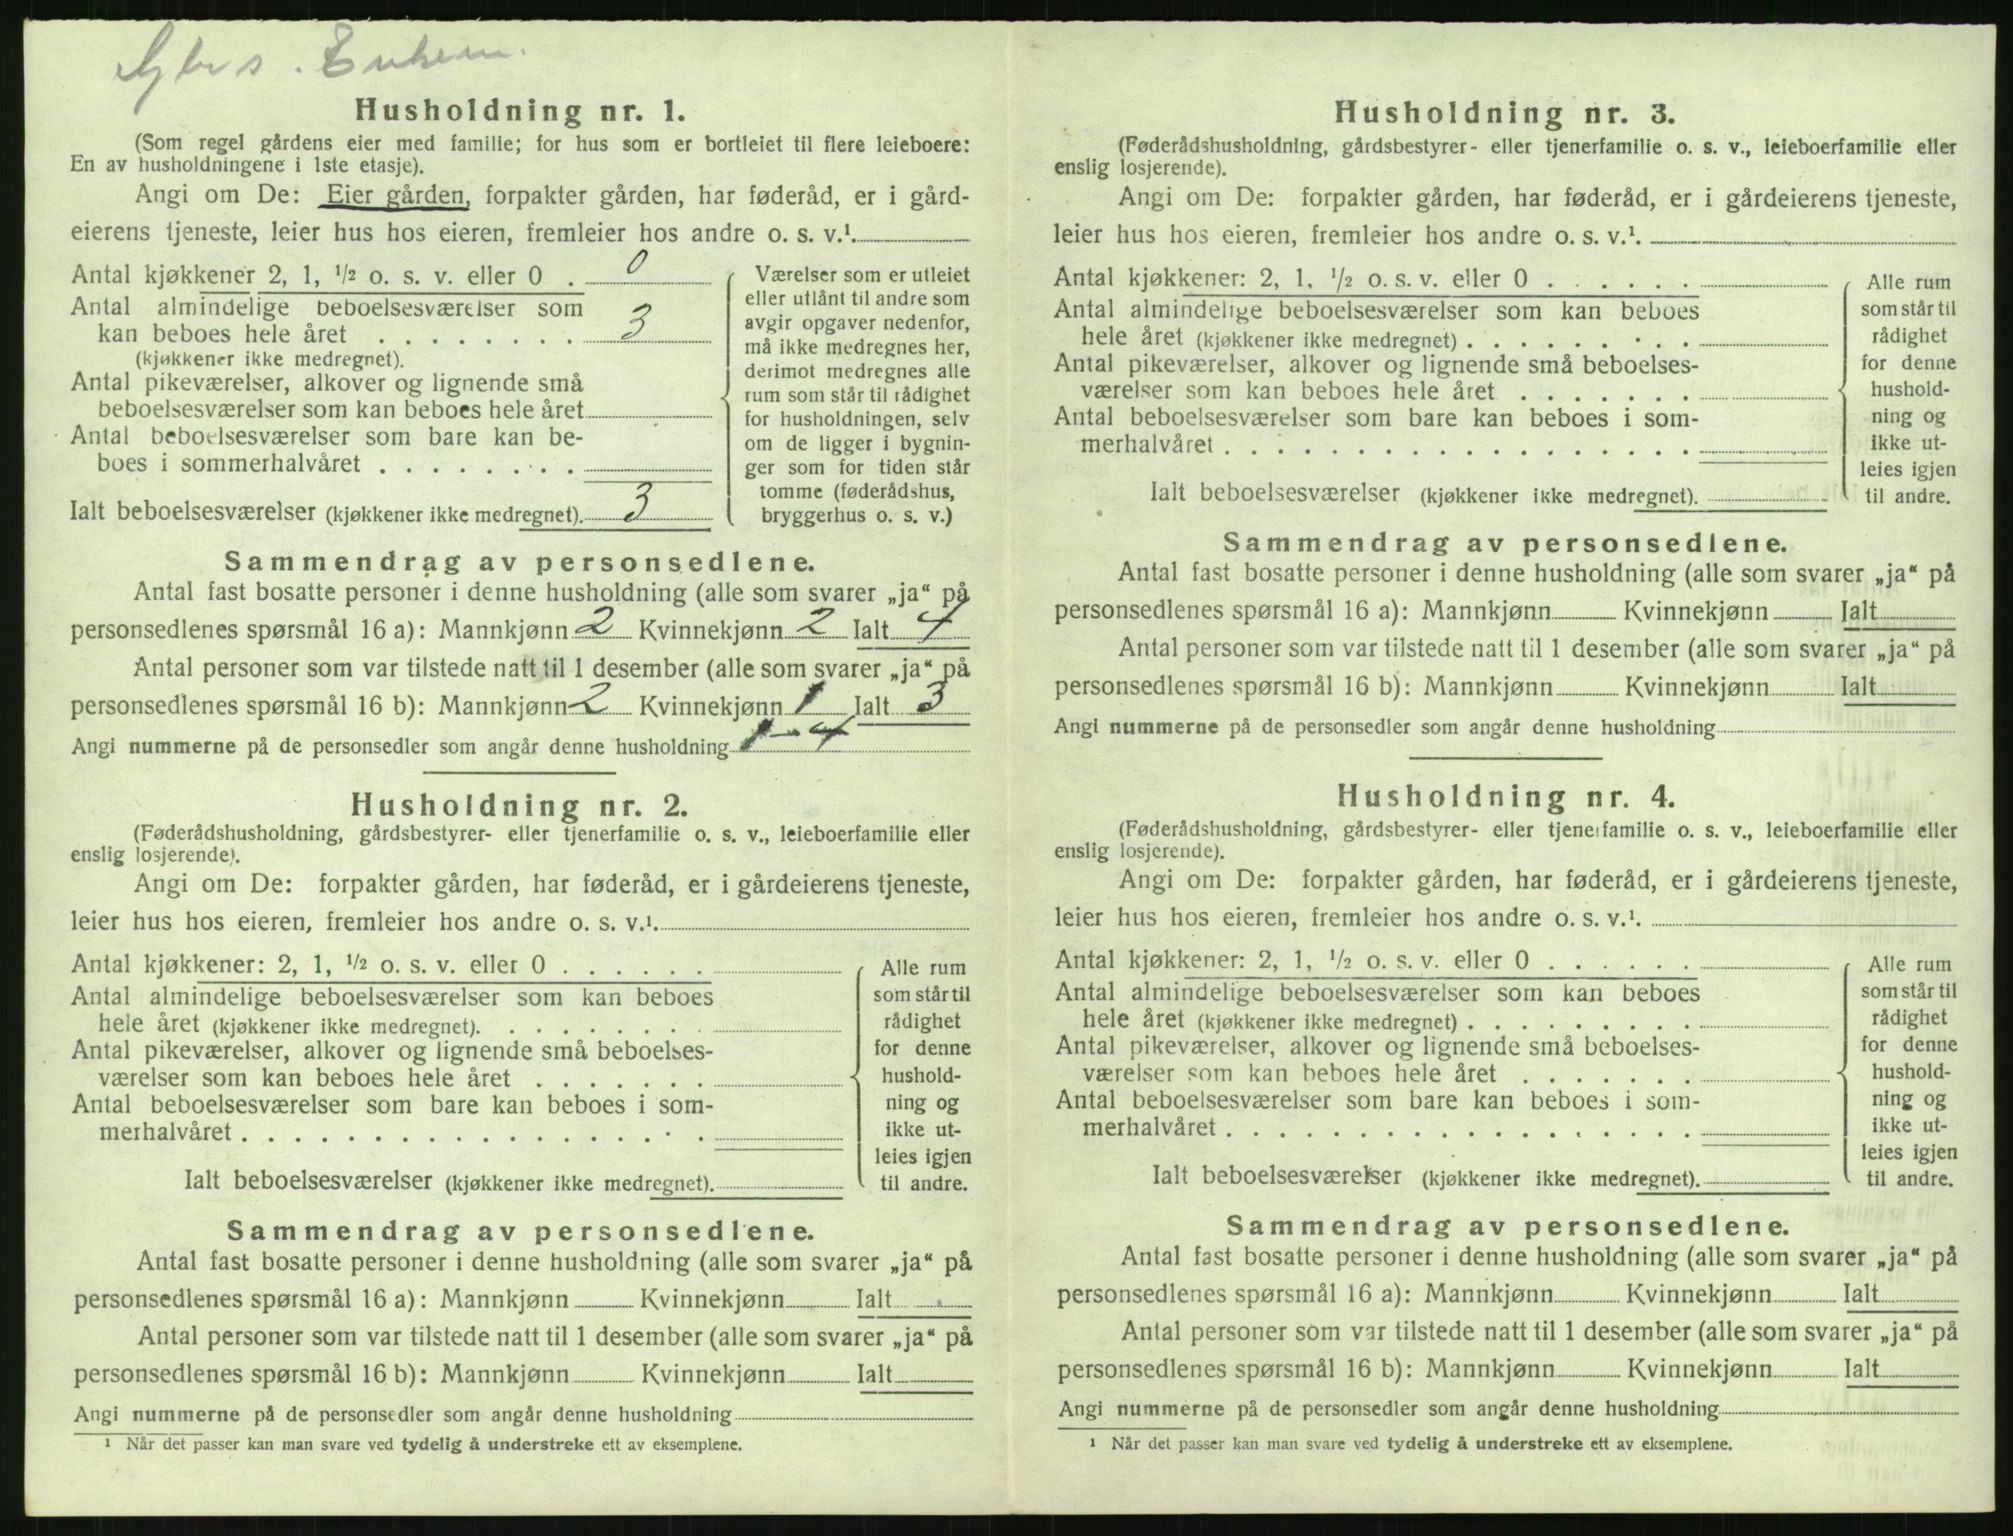 Husholdning nr. 1.
(Som regel gårdens eier med familie; for hus som er bortleiet til flere leieboere:
En av husholdningene i 1ste etasje).
Angi om De: Eier gården, forpakter gården, har føderåd, er i gård-
eierens tjeneste, leier hus hos eieren, fremleier hos andre o. s. v.¹.
Antal kjøkkener 2, 1, ½ o. s. v. eller 0 . 0
Antal almindelige beboelsesværelser som
kan beboes hele året . . . . . . . . 3
(kjøkkener ikke medregnet).
Antal pikeværelser, alkover og lignende små
beboelsesværelser som kan beboes hele året
Antal beboelsesværelser som bare kan be-
boes i sommerhalvåret . . . . . . . .
Ialt beboelsesværelser (kjøkkener ikke medregnet). 3
Værelser som er utleiet
eller utlånt til andre som
avgir opgaver nedenfor,
må ikke medregnes her,
derimot medregnes alle
rum som står til rådighet
for husholdningen, selv
om de ligger i bygnin-
ger som for tiden står
tomme (føderådshus,
bryggerhus o. s. v.)
Sammendrag av personsedlene.
Antal fast bosatte personer i denne husholdning (alle som svarer „ja“ på
personsedlenes spørsmål 16 a): Mannkjønn 2 Kvinnekjønn 2 Ialt 4
Antal personer som var tilstede natt til 1 desember (alle som svarer „ja“ på
personsedlenes spørsmål 16 b): Mannkjønn 2 Kvinnekjønn 1 Ialt 3
Angi nummerne på de personsedler som angår denne husholdning 1-4
Husholdning nr. 2.
(Føderådshusholdning, gårdsbestyrer- eller tjenerfamilie o. s. v., leieboerfamilie eller
enslig losjerende).
Angi om De: forpakter gården, har føderåd, er i gårdeierens tjeneste,
leier hus hos eieren, fremleier hos andre o. s. v.¹.
Antal kjøkkener: 2, 1, ½ o. s. v. eller 0 . . . . . .
Antal almindelige beboelsesværelser som kan beboes
hele året (kjøkkener ikke medregnet). . . . . . . . .
Antal pikeværelser, alkover og lignende små beboelses-
værelser som kan beboes hele året . . . . . . .
Antal beboelsesværelser som bare kan beboes i som-
merhalvåret . . . . . . . . . . . . . . . . . .
Ialt beboelsesværelser (kjøkkener ikke medregnet).
Alle rum
som står til
rådighet
for denne
hushold-
ning og
ikke ut-
leies igjen
til andre.
Sammendrag av personsedlene.
Antal fast bosatte personer i denne husholdning (alle som svarer „ja“ på
personsedlenes spørsmål 16 a): Mannkjønn Kvinnekjønn Ialt
Antal personer som var tilstede natt til 1 desember (alle som svarer „ja“ på
personsedlenes spørsmål 16 b): Mannkjønn Kvinnekjønn Ialt
Angi nummerne på de personsedler som angår denne husholdning
¹ Når det passer kan man svare ved tydelig å understreke ett av eksemplene.
Husholdning nr. 3.
(Føderådshusholdning, gårdsbestyrer- eller tjenerfamilie o. s. v., leieboerfamilie eller
enslig losjerende).
Angi om De: forpakter gården, har føderåd, er i gårdeierens tjeneste,
leier hus hos eieren, fremleier hos andre o. s. v.¹.
Antal kjøkkener: 2, 1, ½ o. s. v. eller 0 . . . . . .
Antal almindelige beboelsesværelser som kan beboes
hele året (kjøkkener ikke medregnet) . . . . . . . . .
Antal pikeværelser, alkover og lignende små beboelses-
værelser som kan beboes hele året . . . . . . .
Antal beboelsesværelser som bare kan beboes i som-
merhalvåret . . . . . . . . . . . . . . . . . .
Ialt beboelsesværelser (kjøkkener ikke medregnet).
Alle rum
som står til
rådighet
for denne
hushold-
ning og
ikke ut-
leies igjen
til andre.
Sammendrag av personsedlene.
Antal fast bosatte personer i denne husholdning (alle som svarer „ja“ på
personsedlenes spørsmål 16 a): Mannkjønn Kvinnekjønn Ialt
Antal personer som var tilstede natt til 1 desember (alle som svarer „ja“ på
personsedlenes spørsmål 16 b): Mannkjønn Kvinnekjønn Ialt
Angi nummerne på de personsedler som angår denne husholdning
Husholdning nr. 4.
(Føderådshusholdning, gårdsbestyrer- eller tjenerfamilie o. s. v., leieboerfamilie eller
enslig losjerende).
Angi om De: forpakter gården, har føderåd, er i gårdeierens tjeneste,
leier hus hos eieren, fremleier hos andre o. s. v.¹.
Antal kjøkkener: 2, 1, ½ o. s. v. eller 0 . . . . . .
Antal almindelige beboelsesværelser som kan beboes
hele året (kjøkkener ikke medregnet) . . . . . . . . .
Antal pikeværelser, alkover og lignende små beboelses-
værelser som kan beboes hele året . . . . . . .
Antal beboelsesværelser som bare kan beboes i som-
merhalvåret . . . . . . . . . . . . . . . . . .
Ialt beboelsesværelser (kjøkkener ikke medregnet).
Alle rum
som står til
rådighet
for denne
hushold-
ning og
ikke ut-
leies igjen
til andre.
Sammendrag av personsedlene.
Antal fast bosatte personer i denne husholdning (alle som svarer „ja“ på
personsedlenes spørsmål 16 a): Mannkjønn Kvinnekjønn Ialt
Antal personer som var tilstede natt til 1 desember (alle som svarer „ja“ på
personsedlenes spørsmål 16 b): Mannkjønn Kvinnekjønn Ialt
Angi nummerne på de personsedler som angår denne husholdning
¹ Når det passer kan man svare ved tydelig å understreke ett av eksemplene.